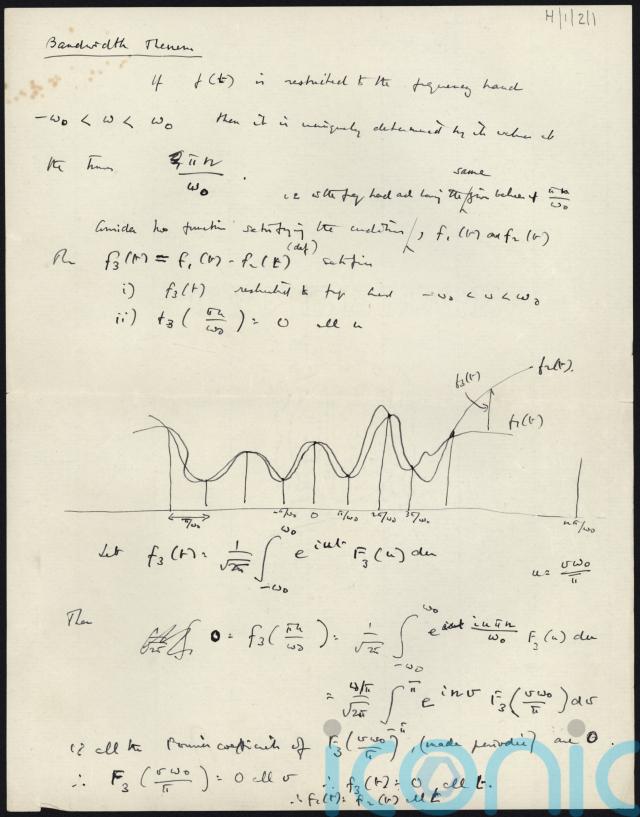 H/1/2/1
Bandwidth Theorem
If f(t) is restricted to the frequency band
-ω₀ < ω < ω₀ then it is uniquely determined by its values at
the times πn/ω₀ .
same
ie with freq band and having the given values at πn/ω₀
Consider two functions satisfying the conditions, f₁(t) and f₂(t)
Then f₃(t) = f₁(t) - f₂(t) (def) satisfies
i) f₃(t) restricted to freq band -ω₀ < ω < ω₀
ii) f₃(πn/ω₀) = 0 all n
f₃(t) f₂(t).
f₁(t)
π/ω₀ -π/ω₀ 0 π/ω₀ 2π/ω₀ 3π/ω₀ nπ/ω₀
Let f₃(t) = 1/√2π ∫_{-ω₀}^{ω₀} e^{iut} F₃(u) du
u = vω₀/π
Then 0 = f₃(πn/ω₀) = 1/√2π ∫_{-ω₀}^{ω₀} e^{iuπn/ω₀} F₃(u) du
= ω/π/√2π ∫_{-π}^{π} e^{inv} F₃(vω₀/π) dv
ie all the Fourier coefficients of F₃(vω₀/π), (made periodic) are 0.
∴ F₃(vω₀/π) = 0 all v ∴ f₃(t) = 0, all t.
∴ f₁(t) = f₂(t) all t
iconic